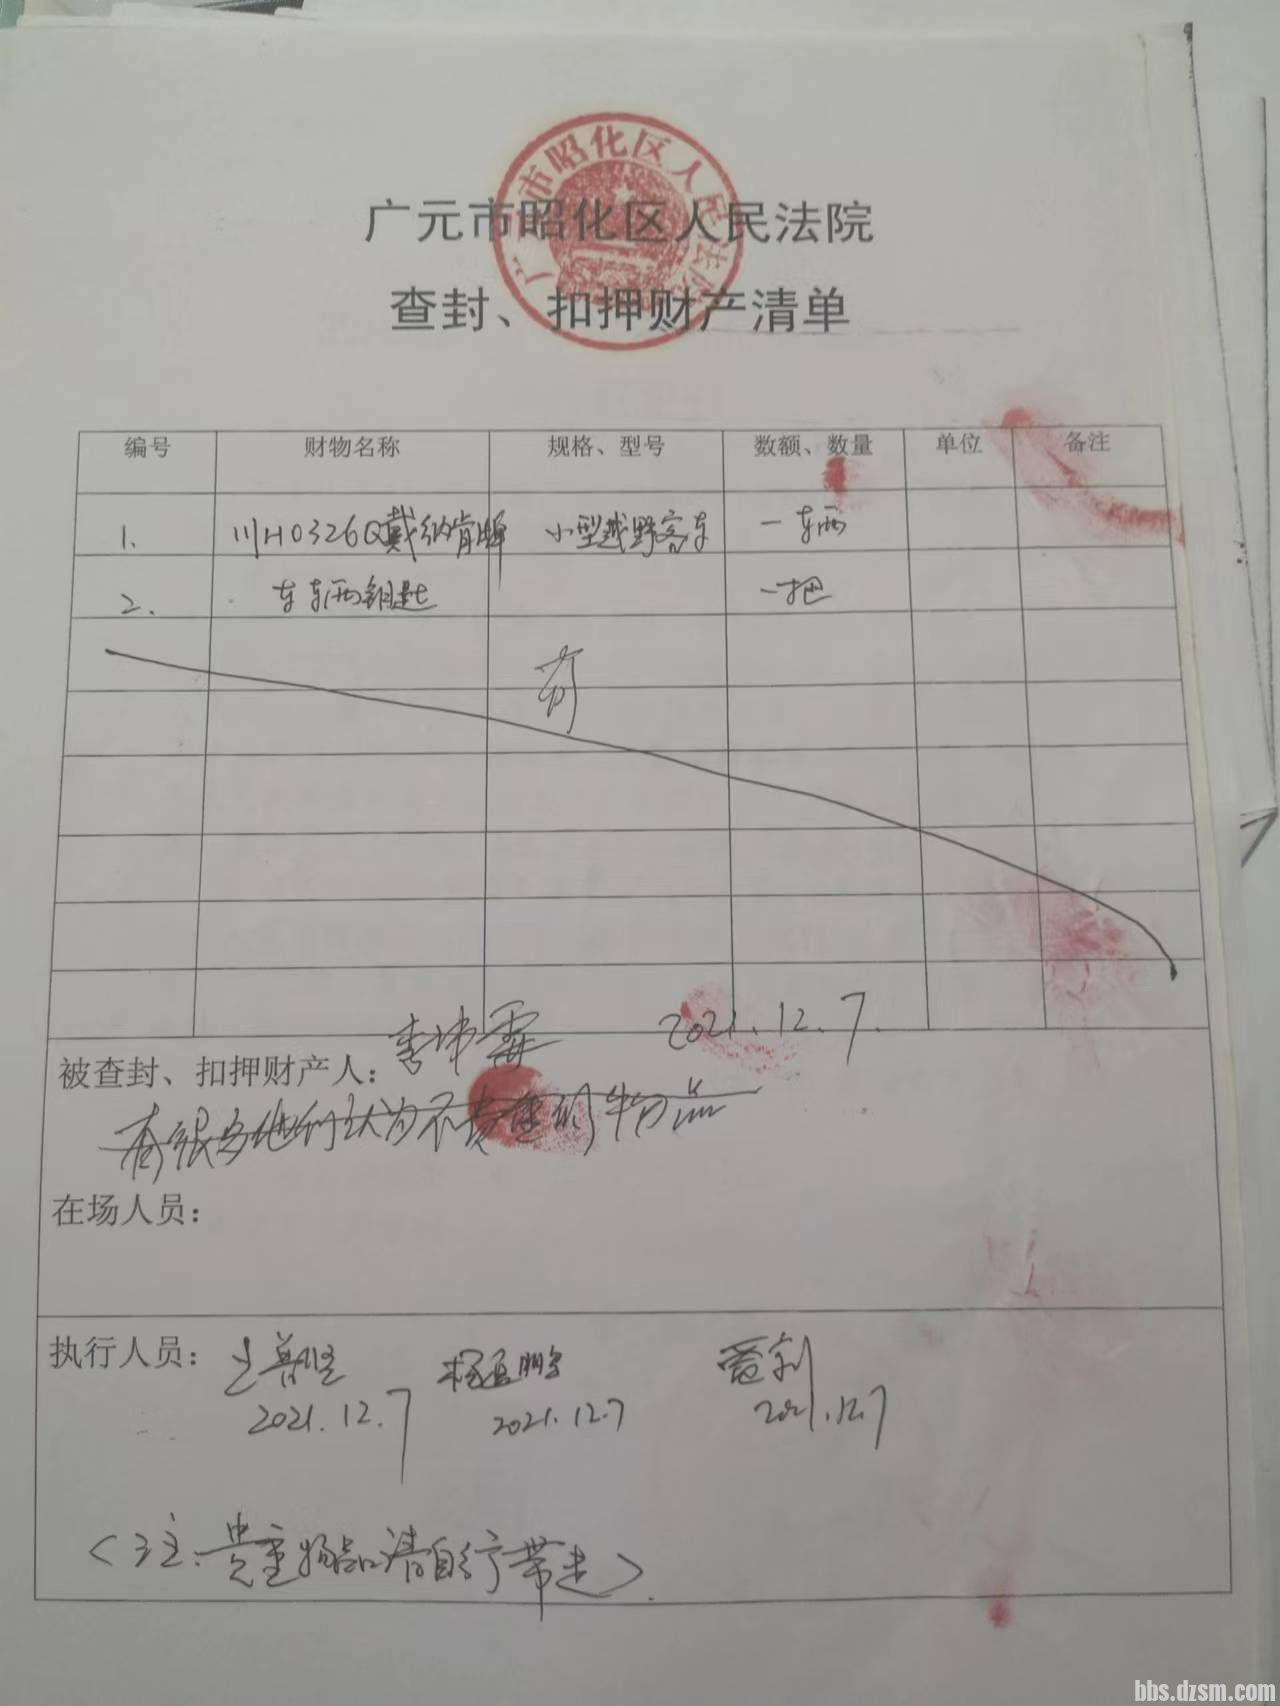 广元市昭化区人民法院
广元市昭化区人民法院
查封、扣押财产清单
编号 财物名称 规格、型号 数额、数量 单位 备注
1. 川H0326Q戴纳肯牌 小型越野客车 一车辆
2. 车车辆钥匙 一把
2021.12.7.
被查封、扣押财产人：
有很多他们认为不贵重的物品
在场人员：
执行人员：
2021.12.7 2021.12.7 2021.12.7
(注：贵重物品请自行带走).
bbs.dzsm.com